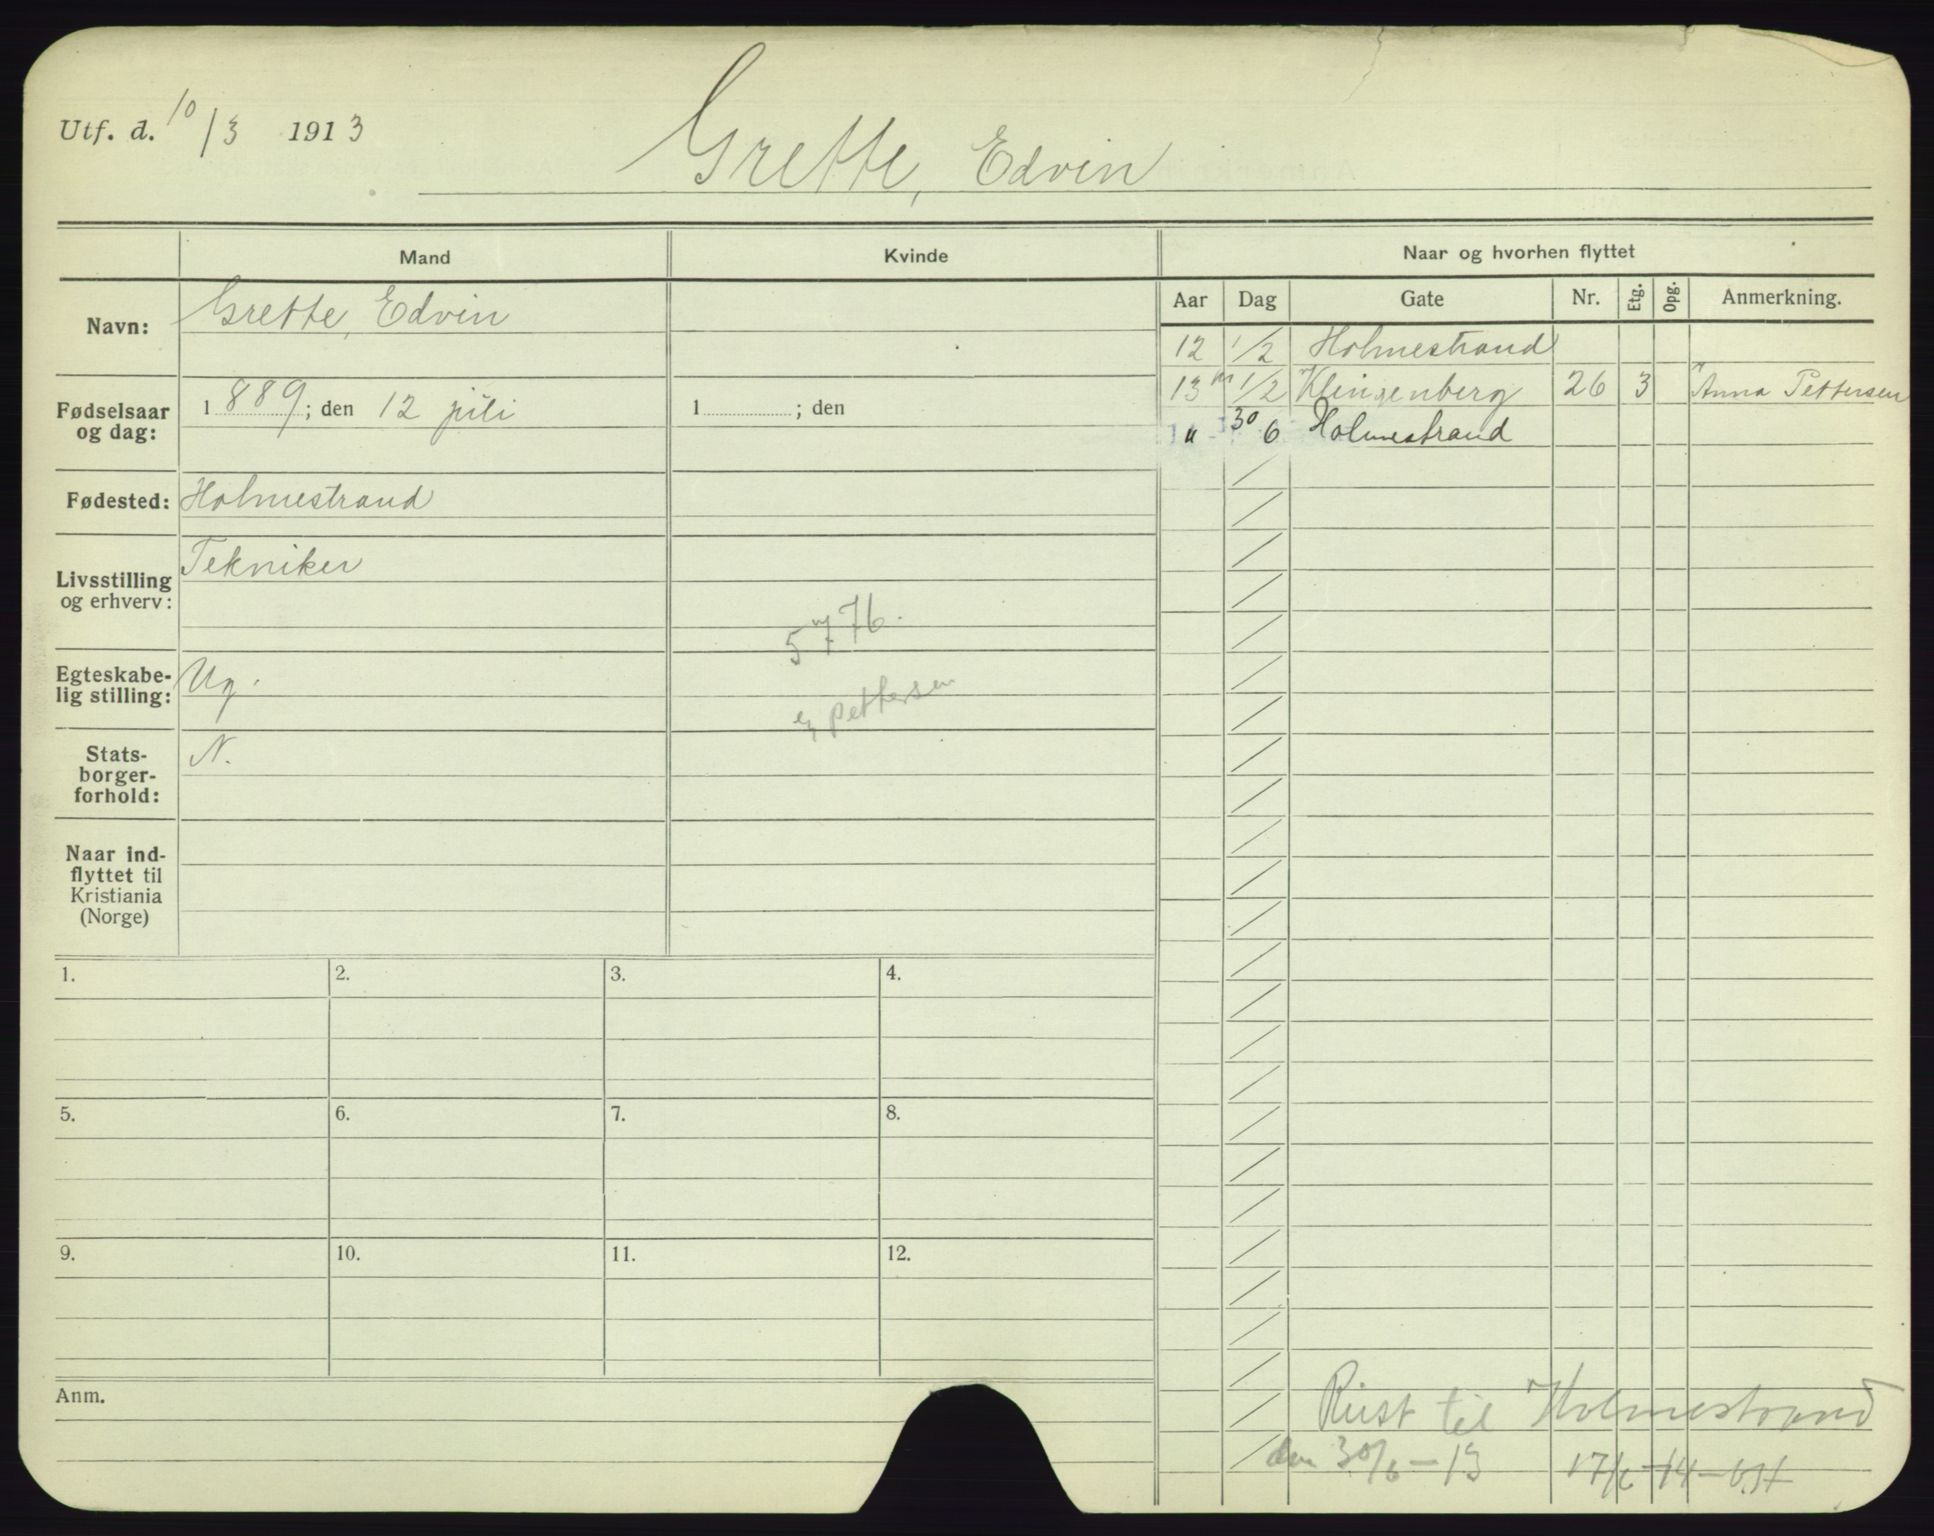 Utf. d. 10/3 1913
Grette, Edvin
Mand
Kvinde
Naar og hvorhen flyttet
Aar Dag Gate Nr. Etg. Opg. Anmerkning.
Navn: Grette, Edvin
12 1/2 Holmestrand
13 1/2 Klingenberg 26 3 Anna Pettersen
" 30 6 Holmestrand
Fødselsaar og dag: 1889; den 12 juli
1 ; den
Fødested: Holmestrand
Livsstilling
og erhverv: Tekniker
5776.
Egteskabe-
lig stilling: Ug.
Pettersen
Stats-
borger-
forhold: N.
Naar ind-
flyttet til
Kristiania
(Norge)
1. 2. 3. 4.
5. 6. 7. 8.
9. 10. 11. 12.
Anm.
Reist til Holmestrand
den 30/6 - 13 17/6 - 14 -